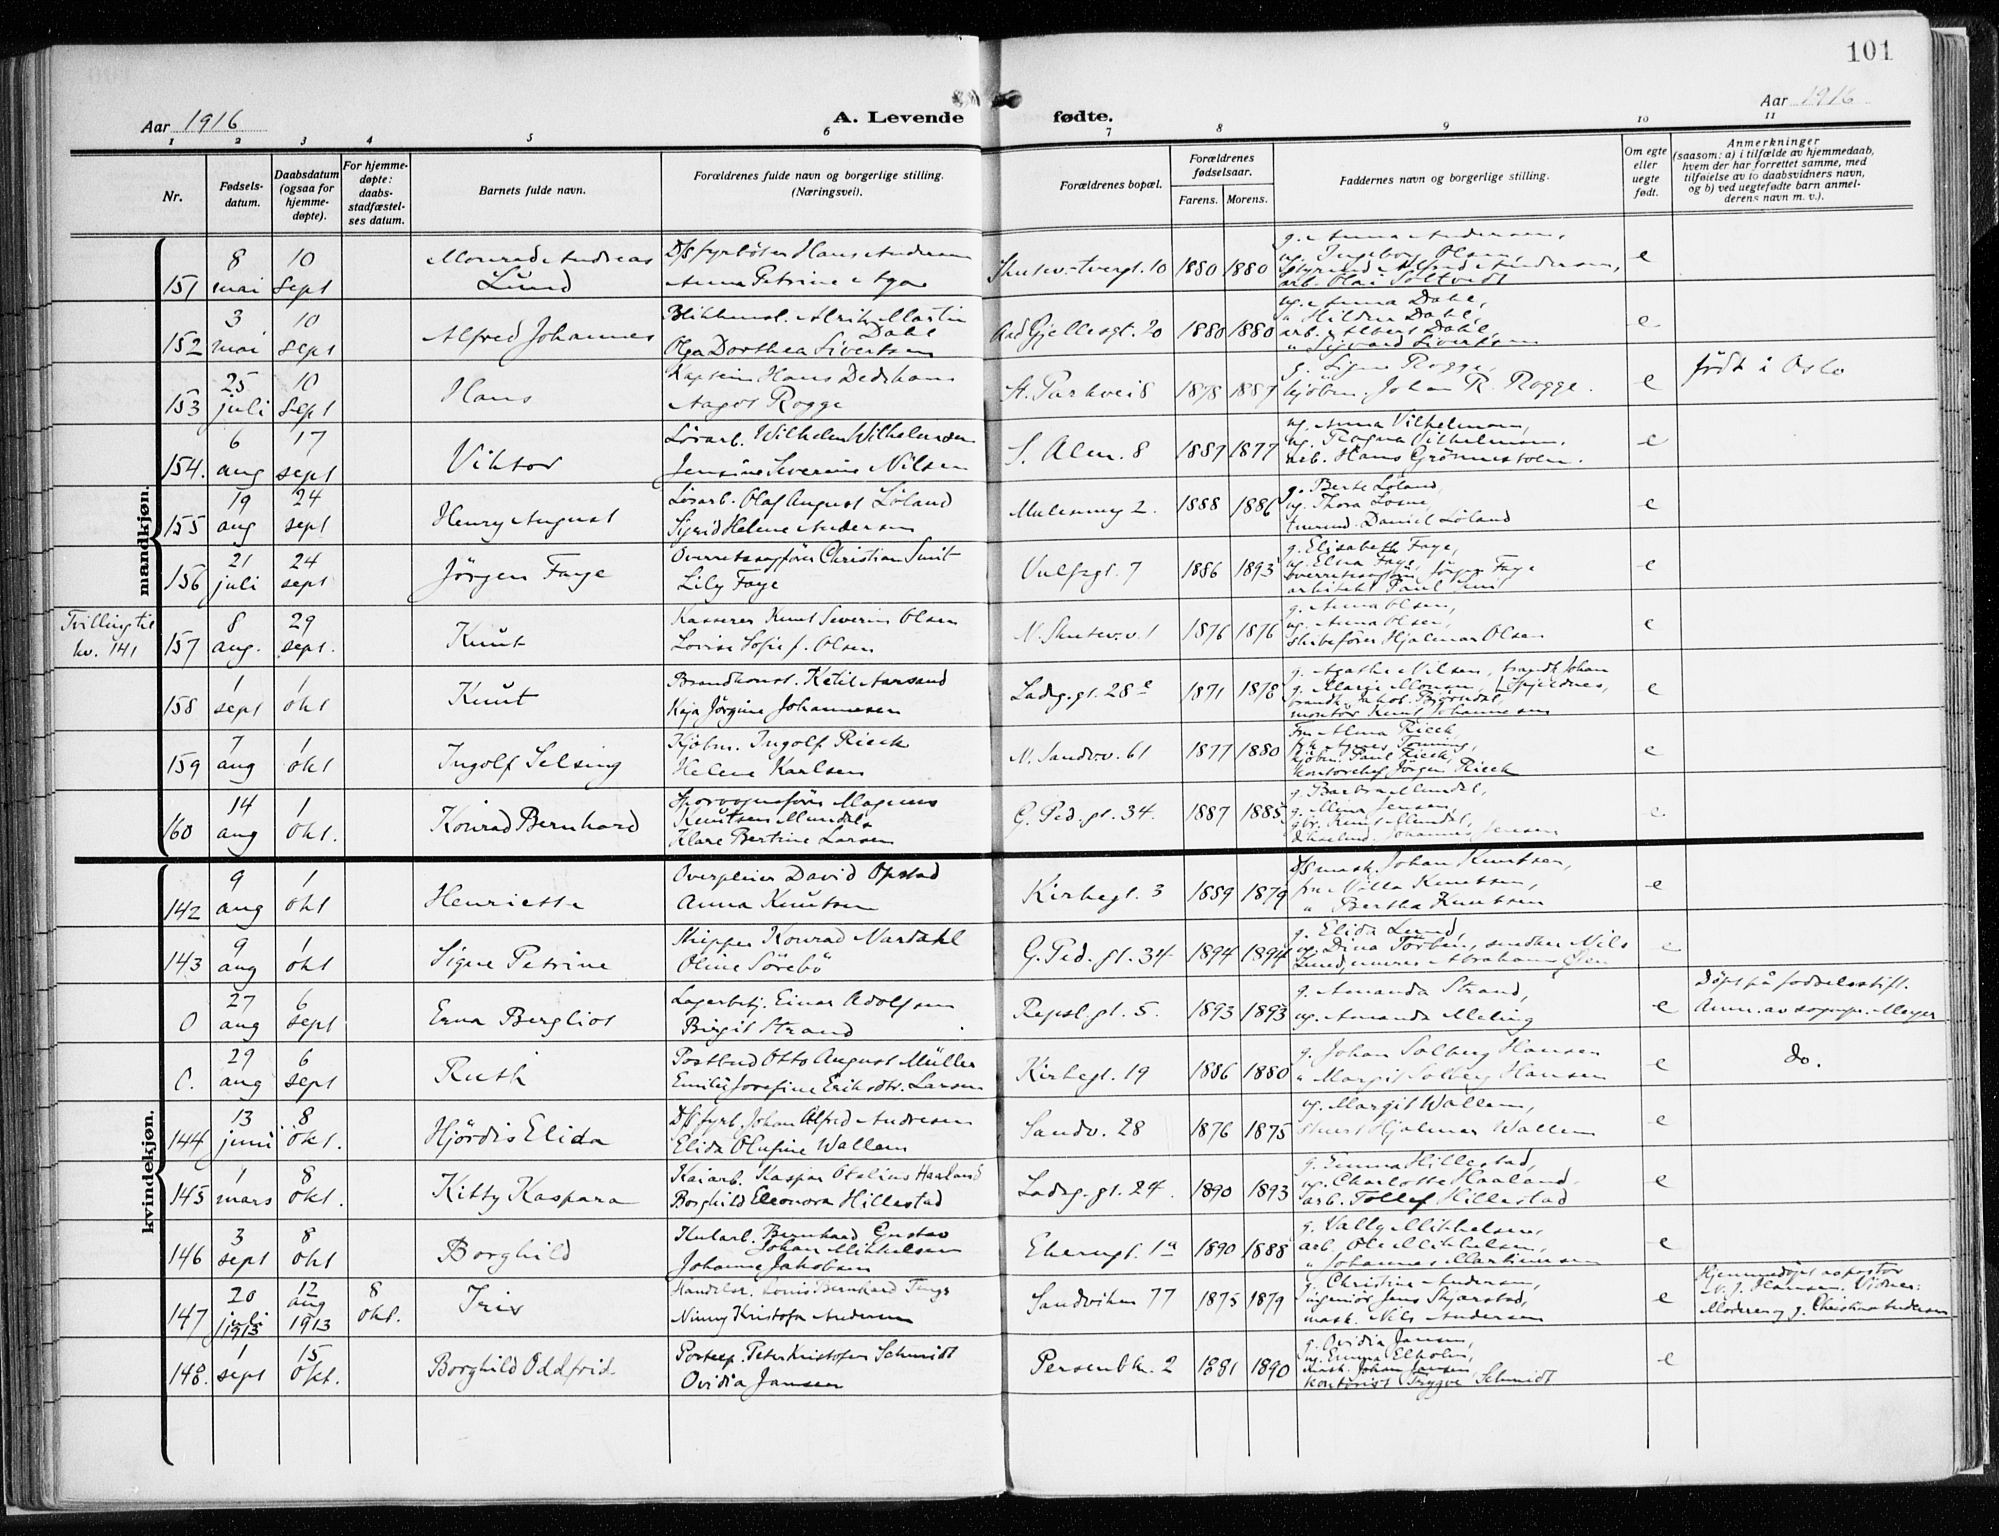 101
Aar 1916
A. Levende fødte.
Aar 1916
1 2 3 4 5 6 7 8 9 10 11
Nr.
Fødsels-
datum.
Daabsdatum
(ogsaa for
hjemme-
døpte).
For hjemme-
døpte:
daabs-
stadfæstel-
ses datum.
Barnets fulde navn.
Forældrenes fulde navn og borgerlige stilling.
(Næringsvei).
Forældrenes bopæl.
Forældrenes
fødselsaar.
Farens. Morens.
Faddernes navn og borgerlige stilling.
Om egte
eller
uegte
født.
Anmerkninger
(saasom: a) i tilfælde av hjemmedaab,
hvem der har forrettet samme, med
tilføielse av to daabsvidners navn,
og b) ved uegtefødte barn anmel-
derens navn m. v.).
mandkjøn.
151 8 mai 10 Sept Monrad Andreas Lund
D/S fyrbøter Hans Andersen
Anna Petrine Aga
Skutev.-tvergt. 10 1880 1880
g. Anna Andersen,
ug. Ingeborg Olsen,
e
152 3 mai 10 Sept Alfred Johannes
Blikkensl. Alrik Martin Dahl
Olga Dorthea Sivertsen
Aad Gjellesgt. 20 1880 1880
ug. Anna Dahl,
" Hildra Dahl,
arb. Albert Dahl,
" Sigvard Sivertsen
e
153 25 juli 10 Sept Hans
Kaptein Hans Dedekam
Aagot Rogge
St. Parkvei 8 1878 1887
g. Signe Rogge,
kjøbm. Johan R. Rogge.
e
født i Oslo
154. 6 aug 17 sept Viktor
Løsarb. Wilhelm Wilhelmsen
Jensine Severine Nilsen
S. Alm. 8 1887 1877
ug. Anna Vilhelmsen,
ug. Ragna Vilhelmsen.
arb. Hans Grönnestolen.
e
155 19 aug 24 sept Henry August
Løsarb. Olaf August Løland
Sigrid Helene Andersen
Mulesmug 2. 1888 1886
g. Berte Løland,
ug. Thora Losne
Daniel Løland
e
156 21 juli 24 sept Jörgen Faye
Overretssagfører Christian Smit
Lily Faye
Vulfsgt. 7 1886 1893
g. Elisabeth Faye,
ug. Elna Faye,
overretssagfører Jörgen Faye
arkitekt Paul Smit
e
Tvilling til
kv. 141
157 8 aug. 29 sept. Knut
Kasserer Knut Severin Olsen
Lovise Sofie f. Olsen
N. Skutev.v. 1 1876 1876
g. Anna Olsen,
ug. Anna Olsen,
skibsfører Hjalmar Olsen
e
158 1 sept 1 okt Knut
Brandkonst. Ketil Aarsand
Kaja Jörgine Johannesen
Ladeg.gt. 28 e 1871 1878
g. Agathe Nilsen, brandk. Johan
g. Marie Monsen, [Spjeldnes,
brandk. Jakob Björndal,
montör Knut Johannesen
e
159 7 aug 1 okt Ingolf Selsing
Kjøbm. Ingolf Rieck
Helene Karlsen
N. Sandv.v. 61 1877 1880
fru Alma Rieck,
frk Agnes Tönning,
kjöbm. Paul Rieck,
kontorchef Jörgen Rieck
e
160 14 aug 1 okt. Konrad Bernhard
Sporvognsfører Magnus
Knutsen Mundal
Klare Bertine Larsen
G. Ped.gt. 34. 1887 1885
g. Barbra Mundal,
g. Mina Jensen,
gbr. Knut Mundal,
Johannes Jensen
e
kvindekjøn.
142 9 aug 1 okt Henriette
Overpleier David Opstad
Anna Knutsen
Kirkegt. 3 1889 1879
D/S mask. Johan Knutsen,
fru Nilla Knutsen,
" Bertha Knutsen
e
143 9 aug 1 okt Signe Petrine
Skipper Konrad Nardahl
Oline Sörebö
G. Ped. gt. 34 1894 1894
g. Elida Lund,
ug. Dina Torben, snedker Nils
Lund, murer Abraham Øen
e
0 27 aug 6 sept Erna Bergliot
Lagerbetj. Einar Adolfsen
Birgit Strand
Repsl.gt. 5. 1893 1893
g. Amanda Strand,
ug. Amanda Meling
e
Döpt på födselsstift.
Anm. av sognepr. Meyer
0. 29 aug 6 sept Ruth
Postbud Otto August Müller
Emilie Josefine Eriksdtr. Larsen
Kirkegt. 19 1886 1880
g. Johan Solberg Hansen
" Margit Solberg Hansen
e
do.
144 13 juni 8 okt. Hjördis Elida
D/S fyrb. Johan Alfred Andresen
Elida Olufine Wallem
Sandv. 28 1876 1875
ug. Margit Wallem,
stuert Hjalmar Wallem
e
145 1 mars 8 okt. Kitty Kaspara
Kaiarb. Kaspar Otelius Haaland
Borghild Eleonora Hillestad
Ladeg.gt. 24. 1890 1893
g. Emma Hillestad,
ug. Charlotte Haaland.
arb. Tollef Hillestad
e
146 3 sept 8 okt Borghild
Kularb. Bernhard Gustav
Johan Mikkelsen
Johanne Jakobsen
Ekerengt. 1a 1890 1888
g. Vally Mikkelsen,
arb. Ole Mikkelsen,
" Johannes Martinussen
e
147 20 juli 1913 12 aug 1913 8 okt. Iris
Handelsr. Louis Bernhard Tings
Ninny Kristofa Andersen
Sandviken 77 1875 1879
g. Christine Andersen,
ingeniør Jens Skjerstad,
mask. Nils Andersen
e
Hjemmedøpt av pastor
J. Hansen. Vidner:
Moderen og g. Christine Andersen
148. 1 sept 15 okt. Borghild Oddfrid
Postexp. Peter Kristofer Schmidt
Ovidia Jansen
Persenbk. 2 1881 1890
g. Ovidia Jansen,
ug. Emma Ekholm,
mask. Johan Jansen
kontorist Trygve Schmidt
e